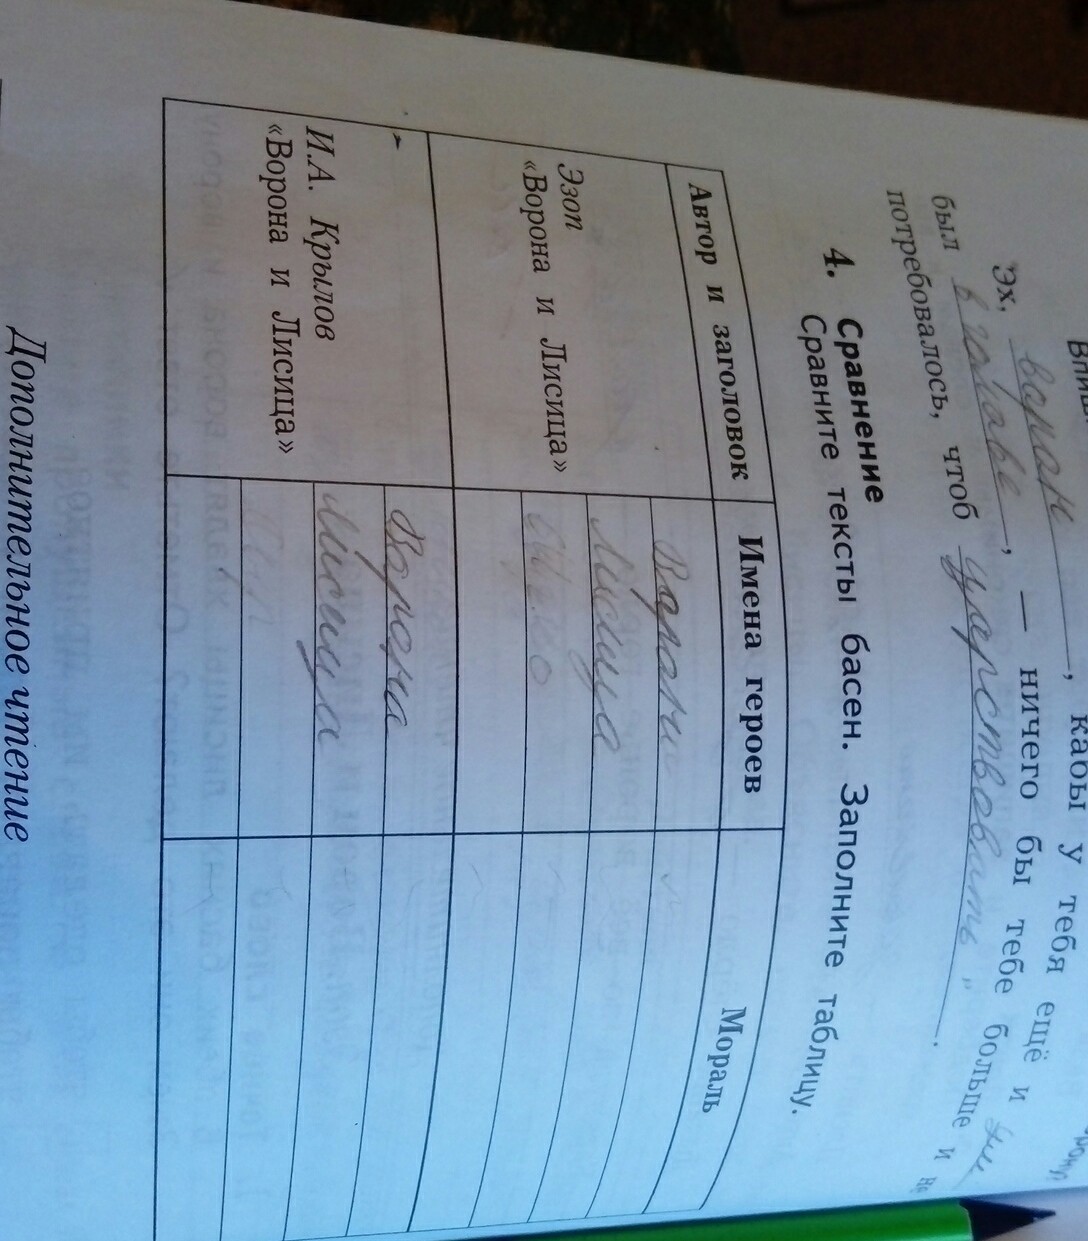 Эх, ворон, кабы у тебя ещё и ум
был в голове, — ничего бы тебе больше и не
потребовалось, чтоб царствовать".
4. Сравнение
Сравните тексты басен. Заполните таблицу.
Автор и заголовок Имена героев Мораль
Эзоп
«Ворона и Лисица»
Ворон
Лисица
И.А. Крылов
«Ворона и Лисица»
Ворона
Лисица
Дополнительное чтение